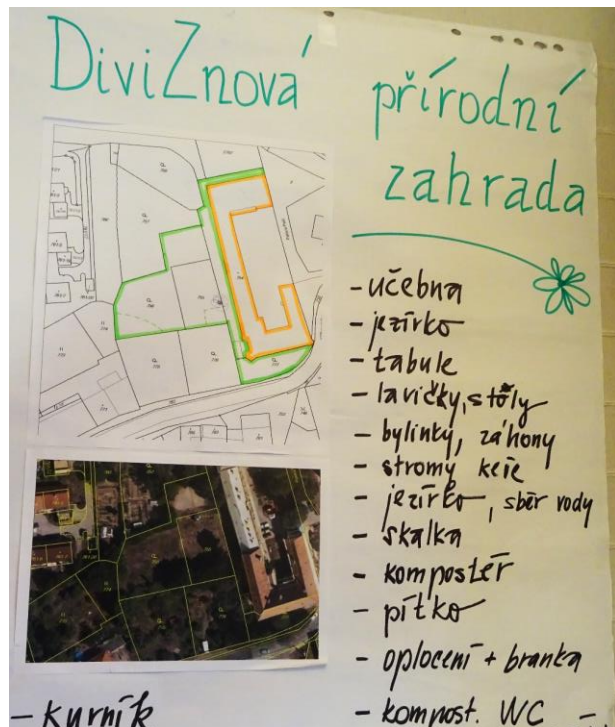 DiviZnová
přírodní
zahrada
- učebna
- jezírko
- tabule
- lavičky, stoly
- bylinky, záhony
- stromy keře
- jezírko, sběr vody
- skalka
- kompostér
- pítko
- oplocení + branka
- kompost. WC -
- kurník